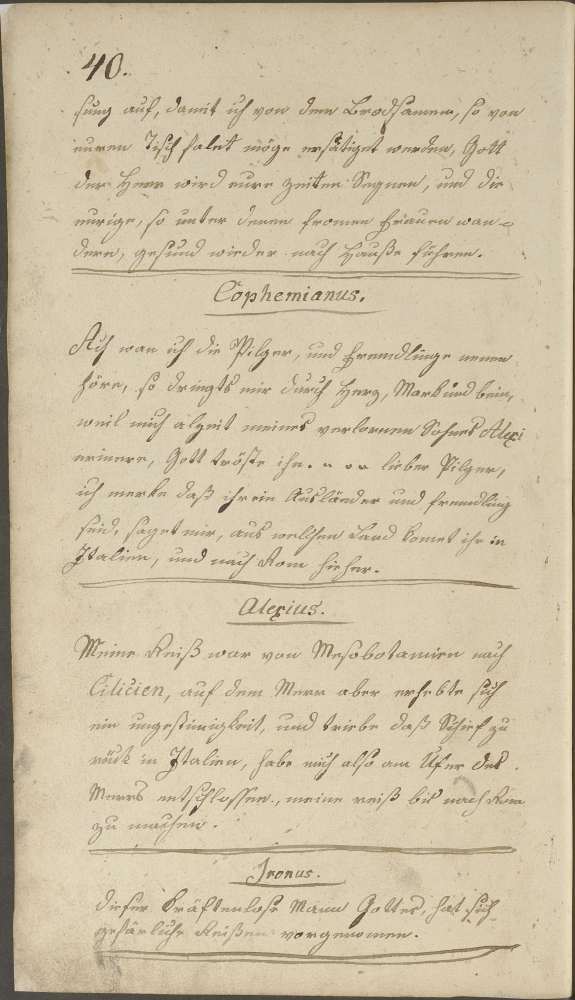 40.
sung auf, damit ich von dem Brodsamen, so von
euren Tisch falet möge ersätiget werden, Gott
der Herr wird eure zeiten Segnen, und die
eurige, so unter denen fromen Frauen wan-
dern, gesund wieder nach Hauße führen.
Cophemianus.
Ach wan ich die Pilger, und fremdlinge nenen
höre, so dringts mir durch Herz, Mark und bein,
weil mich alzeit meines verlornen Sohnes Alexi
erinere, Gott tröste ihn. lieber Pilger,
ich merke daß ihr ein Ausländer und fremdling
seid, saget mir, aus welchen Land komet ihr in
Italien, und nach Rom hieher.
Alexius.
Meine Reiß war von Mesobotamien nach
Cilicien, auf dem Meer aber erhebte sich
ein ungestimigkeit, und triebe daß Schief zu
rück in Italien, habe mich also am Ufer des
Meers entschlossen, meine reiß bis nach Rom
zu machen.
Ironus.
dieser kräftenlose Mann Gottes, hat sich
gefärliche Reißen vorgenomen.